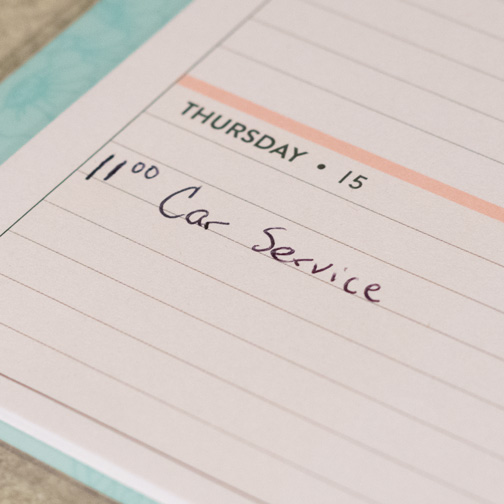 THURSDAY • 15
11⁰⁰ Car Service